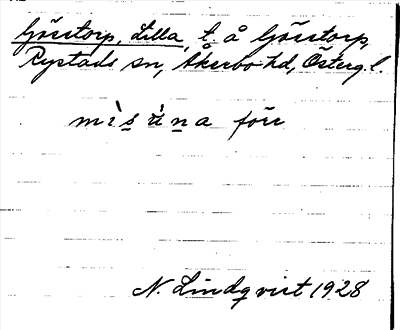 Görstorp, Lilla, t. å Görstorp,
Rystads sn, Åkerbo hd, Östergl.
förr
N. Lindqvist 1928